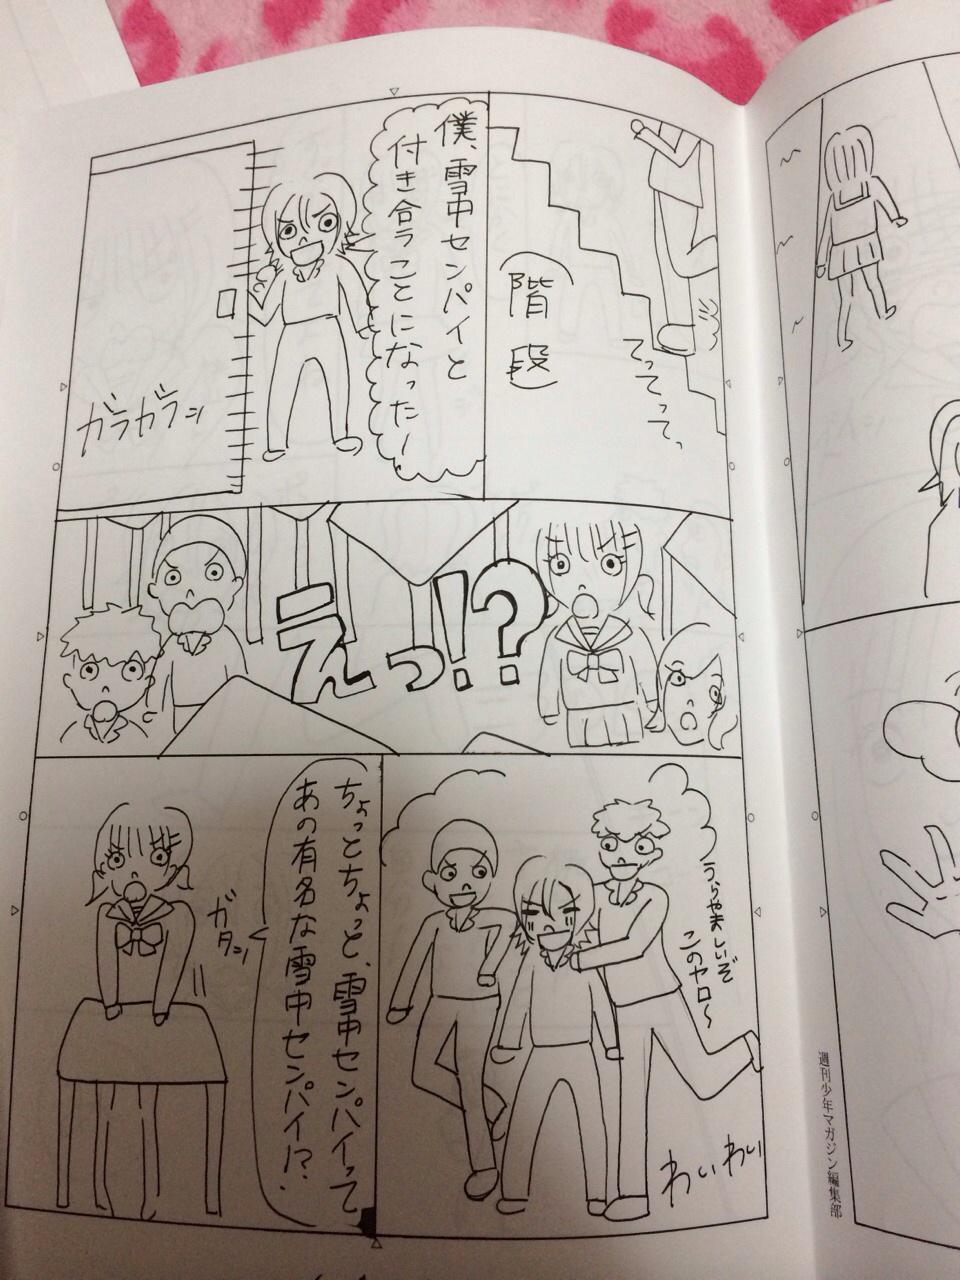 階段
てってってっ、
僕、雪中センパイと
付き合うことになった!
ガラガラッ
えっ!?
うらやましいぞ
このヤロ〜
わいわい
ちょっとちょっと、雪中センパイって
あの有名な雪中センパイ!?
ガタッ
週刊少年マガジン編集部